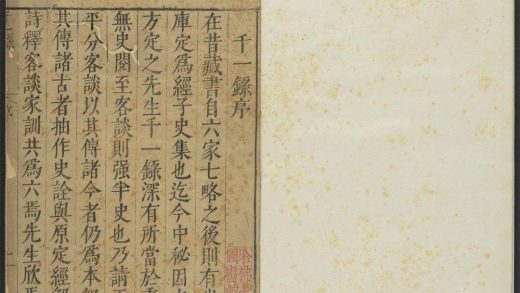 千一錄序
在昔藏書自六家七略之後則有
庫定爲經子史集也迄今中秘因
方定之先生千一錄深有所當於
無史閱至客談則强半史也乃請
平分客談以其傳諸今者仍爲本
其傳諸古者抽作史詮與原定經
詩釋客談家訓共爲六焉先生欣